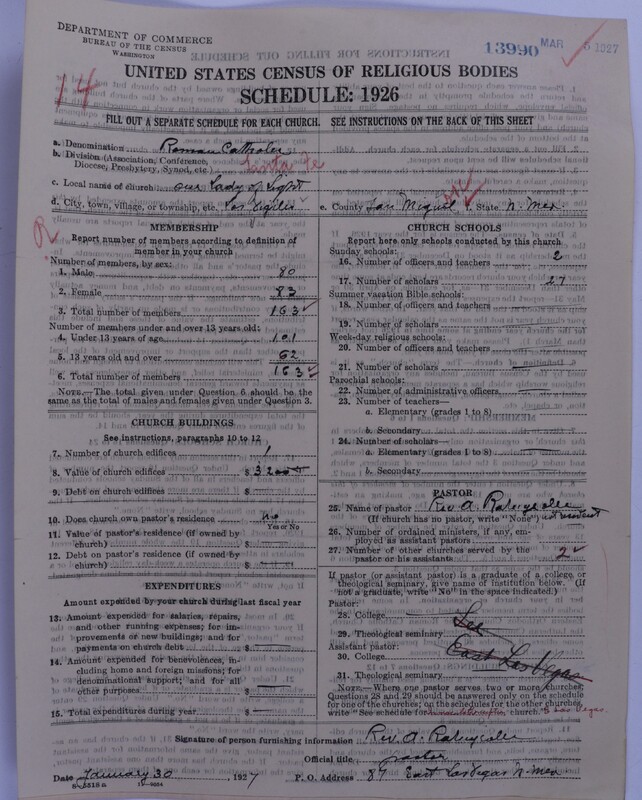 DEPARTMENT OF COMMERCE
BUREAU OF THE CENSUS
WASHINGTON
13990 MAR 5 1927
14
UNITED STATES CENSUS OF RELIGIOUS BODIES
SCHEDULE: 1926
FILL OUT A SEPARATE SCHEDULE FOR EACH CHURCH. SEE INSTRUCTIONS ON THE BACK OF THIS SHEET
a. Denomination Roman Catholic
b. Division (Association, Conference, Diocese, Presbytery, Synod, etc.) Santa Fe
c. Local name of church our Lady of Light
d. City, town, village, or township, etc. Los Vigiles e. County San Miguel f. State N. Mex.
MEMBERSHIP
Report number of members according to definition of
member in your church
Number of members, by sex:
1. Male 80
2. Female 83
3. Total number of members 163
Number of members under and over 13 years old:
4. Under 13 years of age 101
5. 13 years old and over 62
6. Total number of members 163
NOTE.—The total given under Question 6 should be
same as the total of males and females given under Question 3.
CHURCH BUILDINGS
See instructions, paragraphs 10 to 12
7. Number of church edifices 1
8. Value of church edifices $ 3200
9. Debt on church edifices $
10. Does church own pastor's residence no
Yes or No
11. Value of pastor's residence (if owned by
church) $
12. Debt on pastor's residence (if owned by
church) $
EXPENDITURES
Amount expended by your church during last fiscal year
13. Amount expended for salaries, repairs,
and other running expenses; for im-
provements or new buildings; and for
payments on church debt $
14. Amount expended for benevolences, in-
cluding home and foreign missions; for
denominational support; and for all
other purposes $
15. Total expenditures during year $
CHURCH SCHOOLS
Report here only schools conducted by this church
Sunday schools:
16. Number of officers and teachers 2
17. Number of scholars 27
Summer vacation Bible schools:
18. Number of officers and teachers
19. Number of scholars
Week-day religious schools:
20. Number of officers and teachers
21. Number of scholars
Parochial schools:
22. Number of administrative officers
23. Number of teachers—
a. Elementary (grades 1 to 8)
b. Secondary
24. Number of scholars—
a. Elementary (grades 1 to 8)
b. Secondary
PASTOR
25. Name of pastor Rev. A. Rabeyrolle
(If church has no pastor, write "None") not resident
26. Number of ordained ministers, if any, em-
ployed as assistant pastors
27. Number of other churches served by the
pastor or his assistants 2
If pastor (or assistant pastor) is a graduate of a college or
theological seminary, give name of institution below. (If
not a graduate, write "No" in the space indicated.)
Pastor:
28. College See
29. Theological seminary
Assistant pastor: East Las Vegas
30. College
31. Theological seminary
NOTE.—Where one pastor serves two or more churches,
Questions 28 and 29 should be answered only on the schedule
for one of the churches; on the schedules for the other churches,
write "See schedule for church." E Las Vegas.
Signature of person furnishing information Rev. A. Rabeyrolle
Official title pastor
Date January 30, 1927 P. O. Address 87 East Las Vegas N. Mex